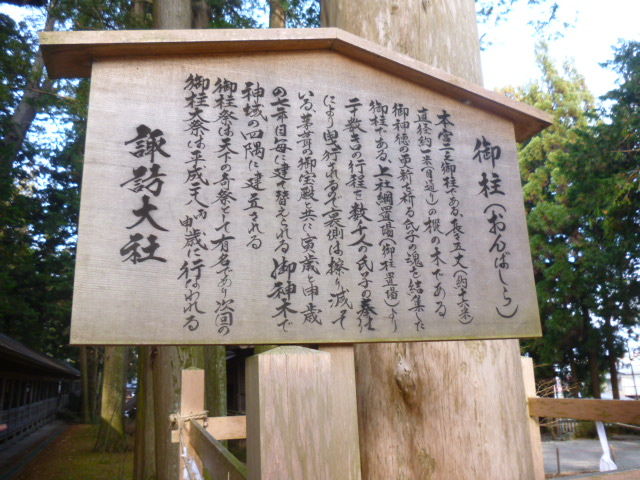 御柱(おんばしら)
本宮二之御柱である、長さ五丈(約十七米)
直径約一米(目通り)の樅の木である
御神徳の更新を祈る氏子の魂を結集した
御柱である、上社綱置場(御柱置場)より
二十数㎞の行程を数千人の氏子の奉仕
により曳行される為裏側は擦り減って
いる、茅葺の御宝殿と共に寅歳と申歳
の七年目毎に建て替えられる御神木で
神域の四隅に建立される
御柱祭は天下の奇祭として有名であり次回の
御柱大祭は平成二八丙申歳に行なわれる
諏訪大社